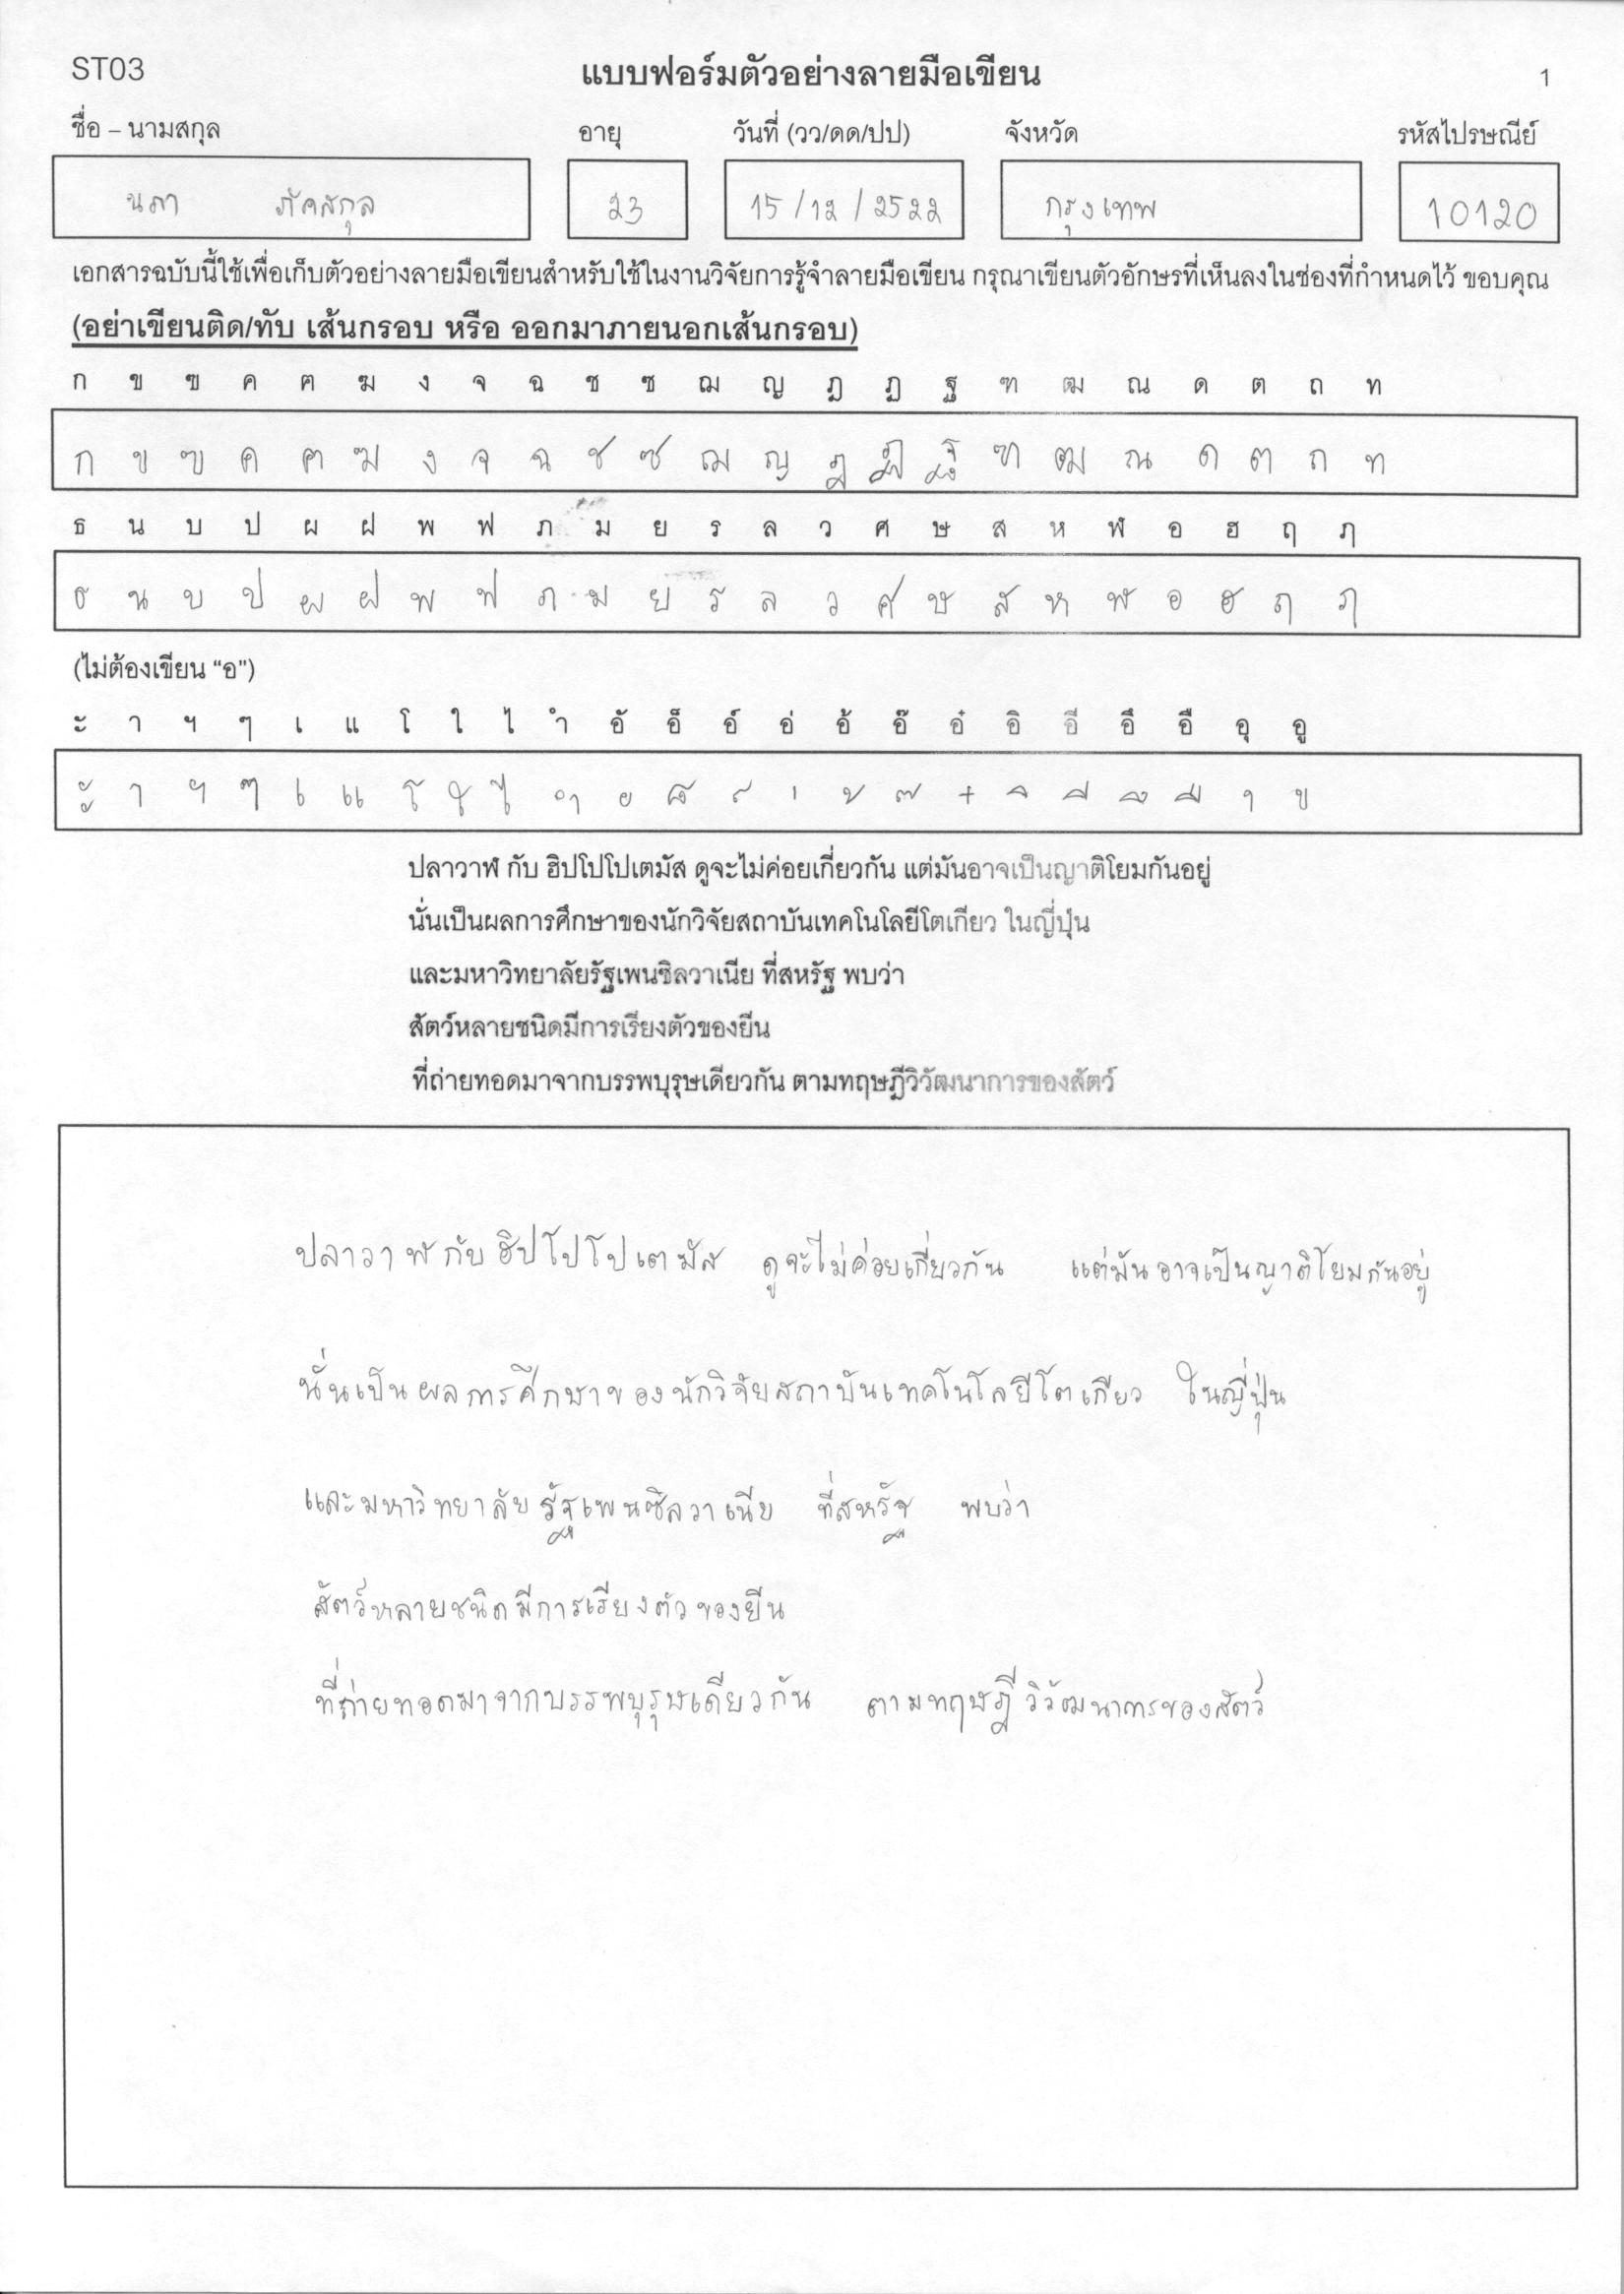 ST03 แบบฟอร์มตัวอย่างลายมือเขียน 1
ชื่อ – นามสกุล อายุ วันที่ (วว/ดด/ปป) จังหวัด รหัสไปรษณีย์
นภา ภัคสกุล 23 15/12/2522 กรุงเทพ 10120
เอกสารฉบับนี้ใช้เพื่อเก็บตัวอย่างลายมือเขียนสำหรับใช้ในงานวิจัยการรู้จำลายมือเขียน กรุณาเขียนตัวอักษรที่เห็นลงในช่องที่กำหนดไว้ ขอบคุณ
(อย่าเขียนติด/ทับ เส้นกรอบ หรือ ออกมาภายนอกเส้นกรอบ)
ก ข ฃ ค ฅ ฆ ง จ ฉ ช ซ ฌ ญ ฎ ฏ ฐ ฑ ฒ ณ ด ต ถ ท
ก ข ฃ ค ฅ ฆ ง จ ฉ ช ซ ฌ ญ ฎ ฏ ฐ ฑ ฒ ณ ด ต ถ ท
ธ น บ ป ผ ฝ พ ฟ ภ ม ย ร ล ว ศ ษ ส ห ฬ อ ฮ ฤ ฦ
ธ น บ ป ผ ฝ พ ฟ ภ ม ย ร ล ว ศ ษ ส ห ฬ อ ฮ ฤ ฦ
(ไม่ต้องเขียน “อ”)
ะ า ฯ ๆ เ แ โ ใ ไ ำ อั อ็ อ์ อ่ อ้ อ๊ อ๋ อิ อี อึ อื อุ อู
ะ า ฯ ๆ เ แ โ ใ ไ ำ ั ็ ์ ่ ้ ๊ ๋ ิ ี ึ ื ุ ู
ปลาวาฬ กับ ฮิปโปโปเตมัส ดูจะไม่ค่อยเกี่ยวกัน แต่มันอาจเป็นญาติโยมกันอยู่
นั่นเป็นผลการศึกษาของนักวิจัยสถาบันเทคโนโลยีโตเกียว ในญี่ปุ่น
และมหาวิทยาลัยรัฐเพนซิลวาเนีย ที่สหรัฐ พบว่า
สัตว์หลายชนิดมีการเรียงตัวของยีน
ที่ถ่ายทอดมาจากบรรพบุรุษเดียวกัน ตามทฤษฎีวิวัฒนาการของสัตว์
ปลาวาฬกับฮิปโปโปเตมัส ดูจะไม่ค่อยเกี่ยวกัน แต่มันอาจเป็นญาติโยมกันอยู่
นั่นเป็นผลการศึกษาของนักวิจัยสถาบันเทคโนโลยีโตเกียว ในญี่ปุ่น
และมหาวิทยาลัยรัฐเพนซิลวาเนีย ที่สหรัฐ พบว่า
สัตว์หลายชนิดมีการเรียงตัวของยีน
ที่ถ่ายทอดมาจากบรรพบุรุษเดียวกัน ตามทฤษฎีวิวัฒนาการของสัตว์